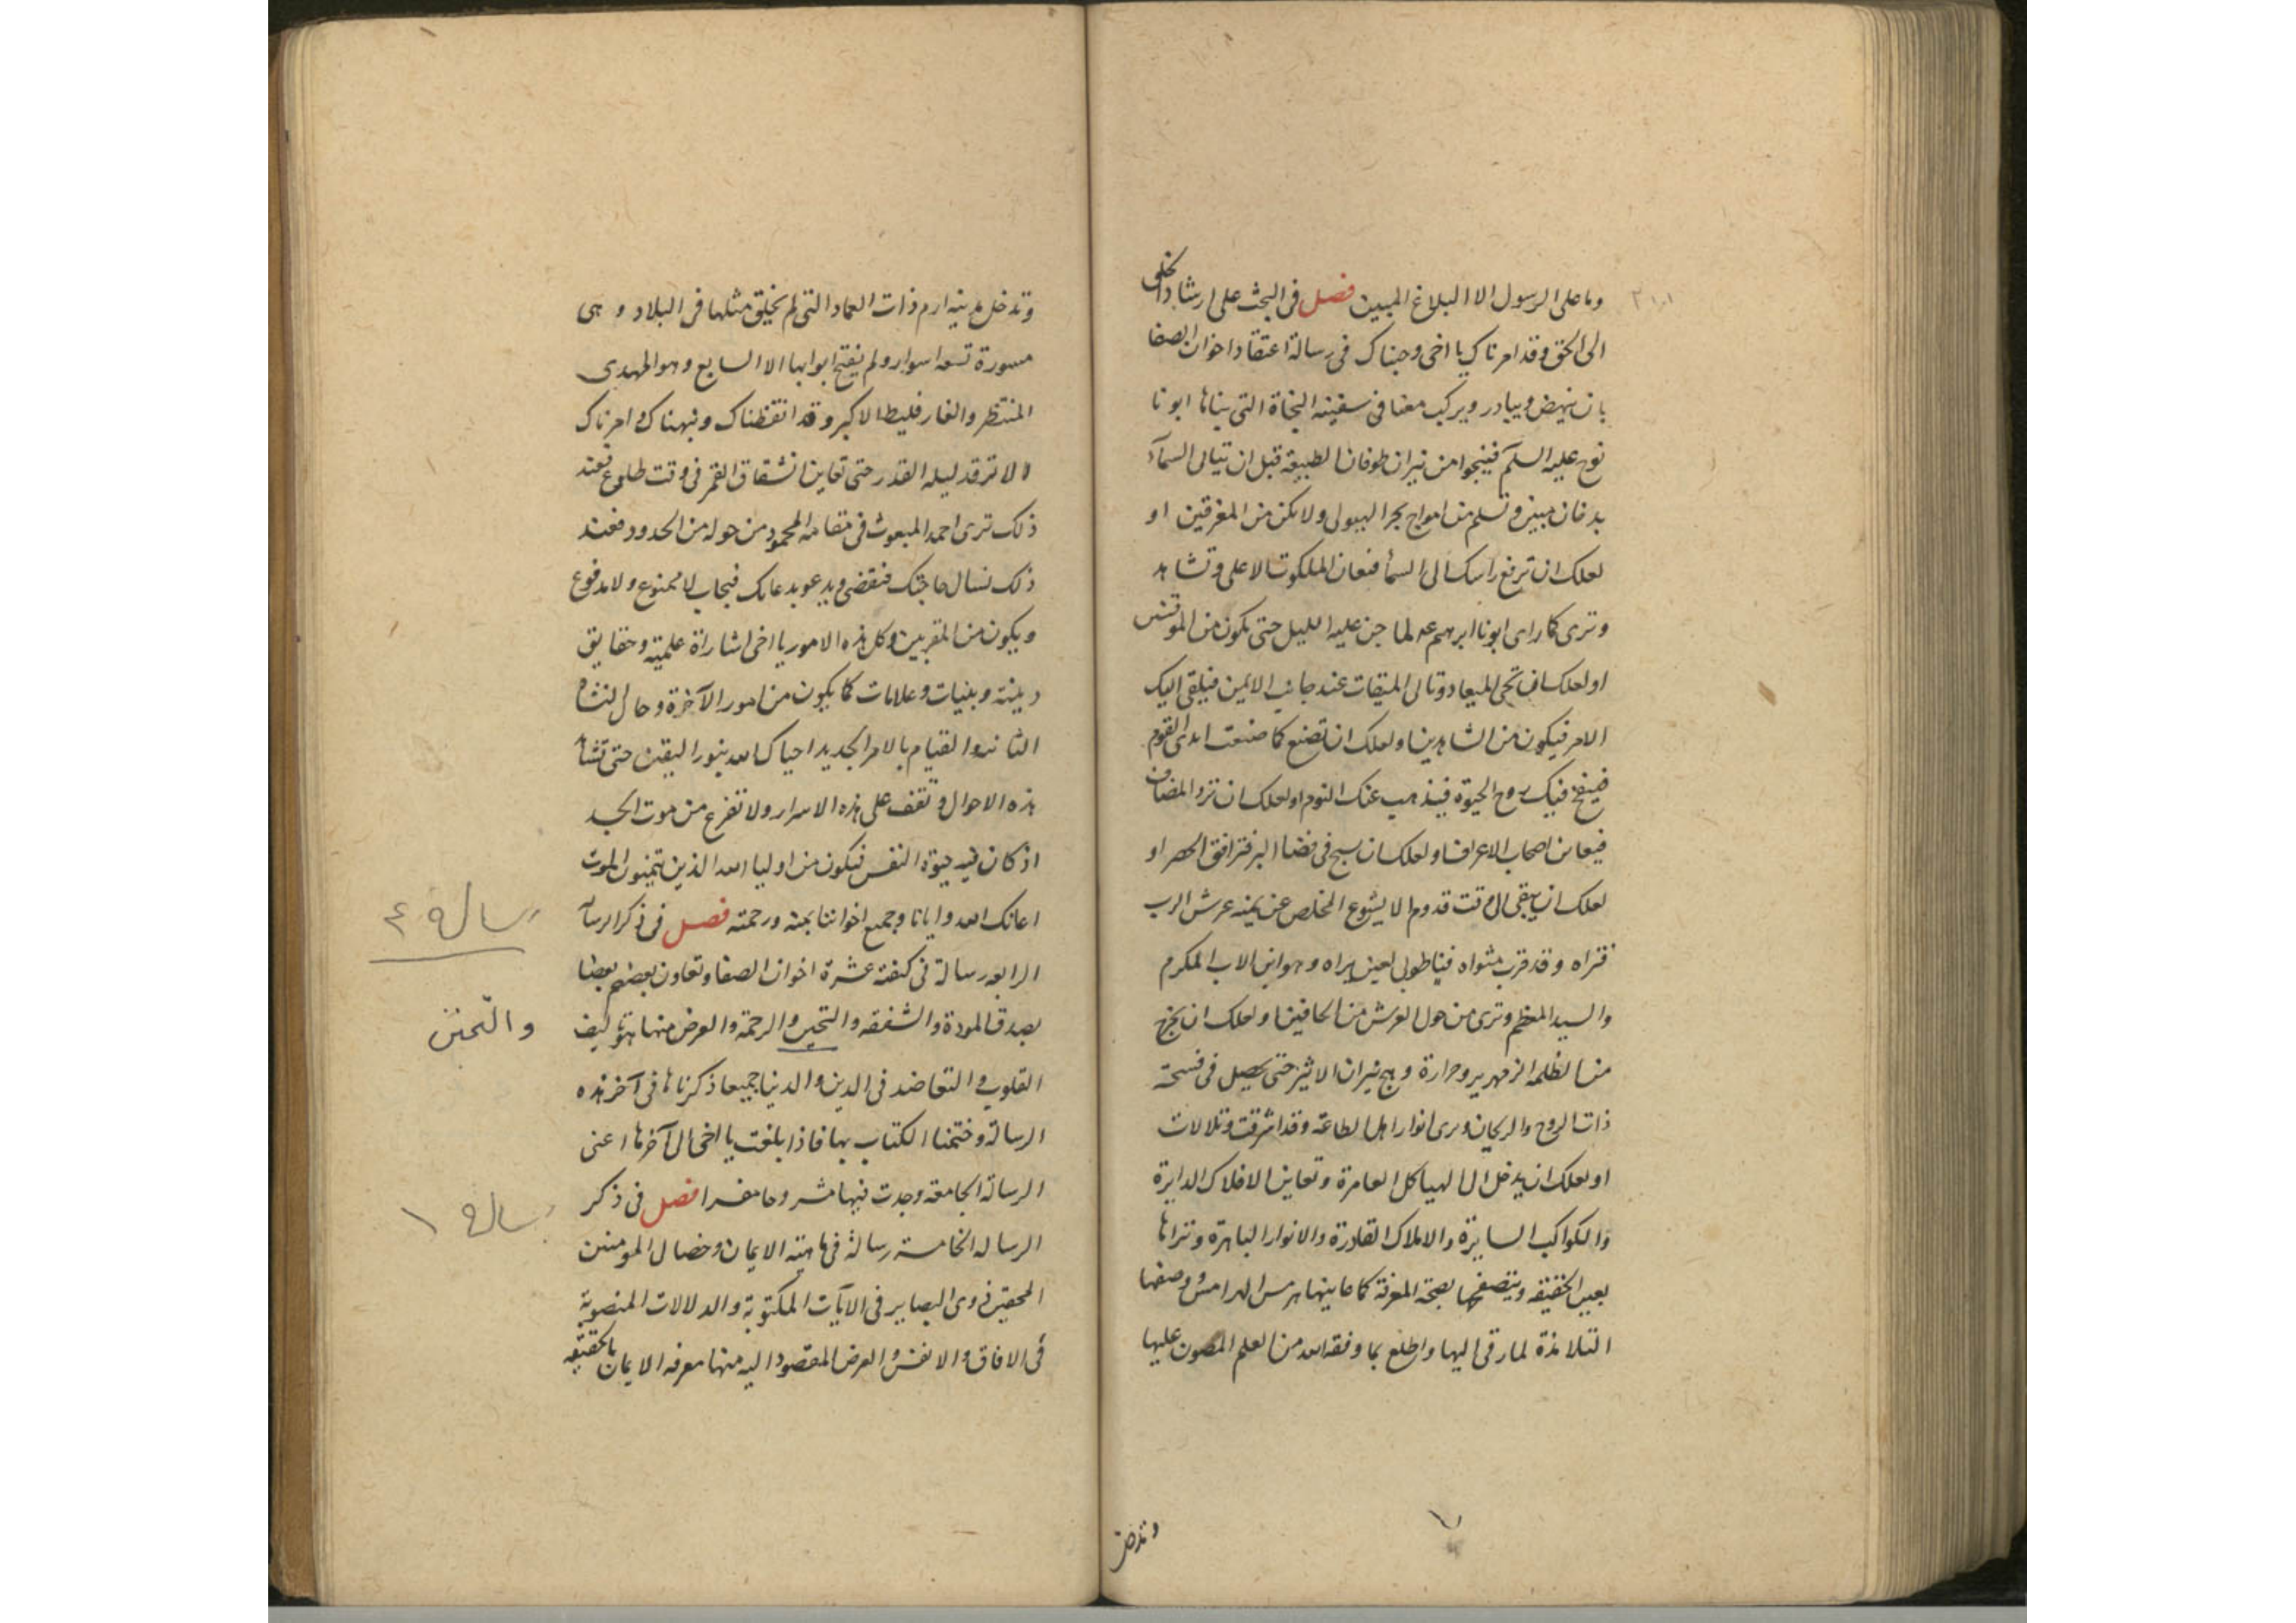 وما على الرسول الا البلاغ المبين فصل فى البحث على ارشاد الخلق
الى الحق وقد امرناك يا اخى وجبناك فى رسالة اعتقاد اخوان الصفا
بان ينهض ويبادر ويركب معنا فى سفينه النجاة التى بناها ابونا
نوح عليه السلم فينجوا من نيران طوفان الطبيعة قبل ان تياتى السمآء
بدخان مبين وتسلم من امواج بحر الهيولى ولا يكن من المغرقين او
لعلك ان ترفع راسك الى السمأ فتعان الملكوت الاعلى وتشاهد
وترى كما راى ابونا ابرهيم عه لما جن عليه الليل حتى يكون من الموقنين
او لعلك ان تجى الميعاد وتاتى الميقات عند جانب الايمن فيلقى اليك
الامر فيكون من الشاهدين او لعلك ان تصنع كما صنعت القوم
فينفخ فيك روح الحيوة فيذهب عنك النوم او لعلك ان
فيعاين اصحاب الاعراف او لعلك ان سبح فى فضا او
لعلك ان يبقى الى وقت قدوم الايشوع المخلص عن يمنه عرش الرب
فتراه وقد قرب مثواه فيا طوبى لعين يراه وهو ابن الاب المكرم
والسيد المعظم وترى من حول العرش من الحافين او لعلك ان يخرج
من الظلمه الزمهرير وحرارة وهج نيران الاثير حتى يحصل فى فسحة
ذات الروح والريحان ويرى انوار اهل الطاعة وقد اشرقت وتلالات
او لعلك ان يدخل الى الهياكل العامرة وتعاين الافلاك الدايرة
والكواكب السايرة والاملاك القادرة والانوار الباهرة وتتراها
بعين الحقيقه ويتصفحها بصحة المعرفة كما عاينها هرمس الهرامس ووصفها
التلامذة لما رقى اليها واطلع بما وفقه الله من العلم المصون عليها
وتدخل
وتدخل مدينه ارم ذات العماد التى لم يخلق مثلها فى البلاد وهى
مسورة تسعه اسوار ولم يفتح ابوابها الا السابع وهو المهدى
المنتظر والفارقليط الاكبر وقد انقظناك ونبهناك وامرناك
الا ترقد ليله القدر حتى تعاين انشقاق القمر فى وقت طلوع فعند
ذلك ترى احمد المبعوث فى مقامه المحمود من حوله من الحدود فعند
ذلك نسال حاجتك فتقضى ويدعو بدعائك فيجاب لا ممنوع ولا مدفوع
ويكون من المقربين وكل هذه الامور يا اخى اشاراة علمية وحقايق
دينية وبينيات وعلامات كما يكون من امور الآخرة وحال النشاه
الثانيه والقيام بالامر الجديد احياك الله بنور اليقين حتى تشأ
هذه الاحوال وتقف على هذه الاسرار ولا تفزع من موت الجسد
اذ كان فيه حيوة النفس فيكون من اوليا الله الذين يتمنون الموت
اعانك الله وايانا وجميع اخواننا بمنه ورحمته فصل فى ذكر الرسالة
الرابعه رسالة فى كيفية عشرة اخوان الصفا وتعاون بعضهم بعضا
بصدق المودة والشفقه والتحين والرحمة والعرض منها هو تاليف
القلوب والتعاضد فى الدين والدنيا جميعا ذكرناها فى آخر هذه
الرسالة وختمنا الكتاب بها فاذا بلغت يا اخى الى آخرها اعنى
الرسالة الجامعة وجدت فيها مشروحا مفسرا فصل فى ذكر
الرساله الخامسة رسالة فى ماهية الايمان وخصال المومنين
المحقين ذوى البصاير فى الآيات المكتوبة والدلالات المنصوبة
فى الافاق والانفس والعرض المقصود اليه منها معرفه الايمان بالحقيقه
رسالة ٤
والتحنن
رسالة